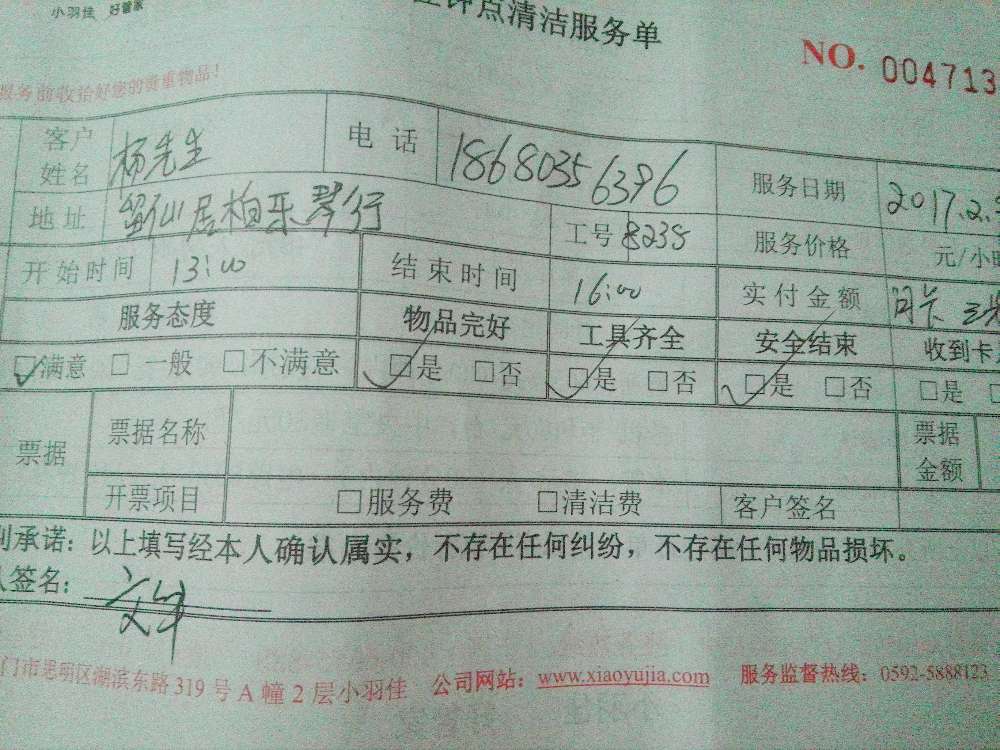 小羽佳 好管家
钟点清洁服务单
NO. 004713
服务前收拾好您的贵重物品！
客户姓名 杨先生 电话 18680356396 服务日期 2017.2.
地址 留仙居柏乐琴行 工号 8238 服务价格 元/小时
开始时间 13:00 结束时间 16:00 实付金额 月卡
服务态度 物品完好 工具齐全 安全结束 收到卡
☑满意 □一般 □不满意 ☑是 □否 ☑是 □否 ☑是 □否 □是 □
票据 票据名称 票据金额
开票项目 □服务费 □清洁费 客户签名
承诺：以上填写经本人确认属实，不存在任何纠纷，不存在任何物品损坏。
签名：
门市思明区湖滨东路319号A幢2层小羽佳 公司网站：www.xiaoyujia.com 服务监督热线：0592-5888123